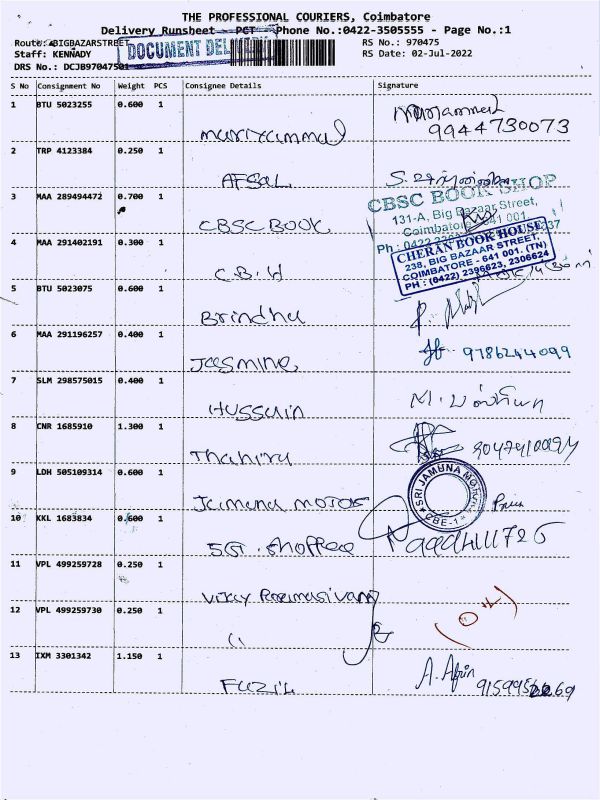 THE PROFESSIONAL COURIERS, Coimbatore
Delivery Runsheet - PCT Phone No.:0422-3505555 - Page No.:1
Route: BIGBAZARSTREET
RS No.: 970475
Staff: KENNADY
RS Date: 02-Jul-2022
DOCUMENT DEL
DRS No.: DCJB97047501
S No Consignment No Weight PCS Consignee Details Signature
1 BTU 5023255 0.600 1
9944730073
Mariyammal
2 TRP 4123384 0.250 1
AFSAL
3 MAA 289494472 0.700 1
CBSC BOOK SHOP
131-A, Big Bazaar Street,
Coimbatore 641 001.
CBSC BOOK
4 MAA 291402191 0.300 1
CHERAN BOOK HOUSE
238, BIG BAZAAR STREET,
COIMBATORE - 641 001. (TN)
PH : (0422) 2396623, 2306624
C.B.H
5 BTU 5023075 0.600 1
Brindha
6 MAA 291196257 0.400 1
9786244099
JASMINE
7 SLM 298575015 0.400 1
HUSSAIN
8 CNR 1685910 1.300 1
Thahira
9 LDH 505109314 0.600 1
SRI JAMUNA MOTORS
CBE-1
Jamuna MOTORS
10 KKL 1683834 0.600 1
5G. Shoppee
11 VPL 499259728 0.250 1
Vijay Paramasivam
12 VPL 499259730 0.250 1
"
13 IXM 3301342 1.150 1
A. Afrin
FUZIL